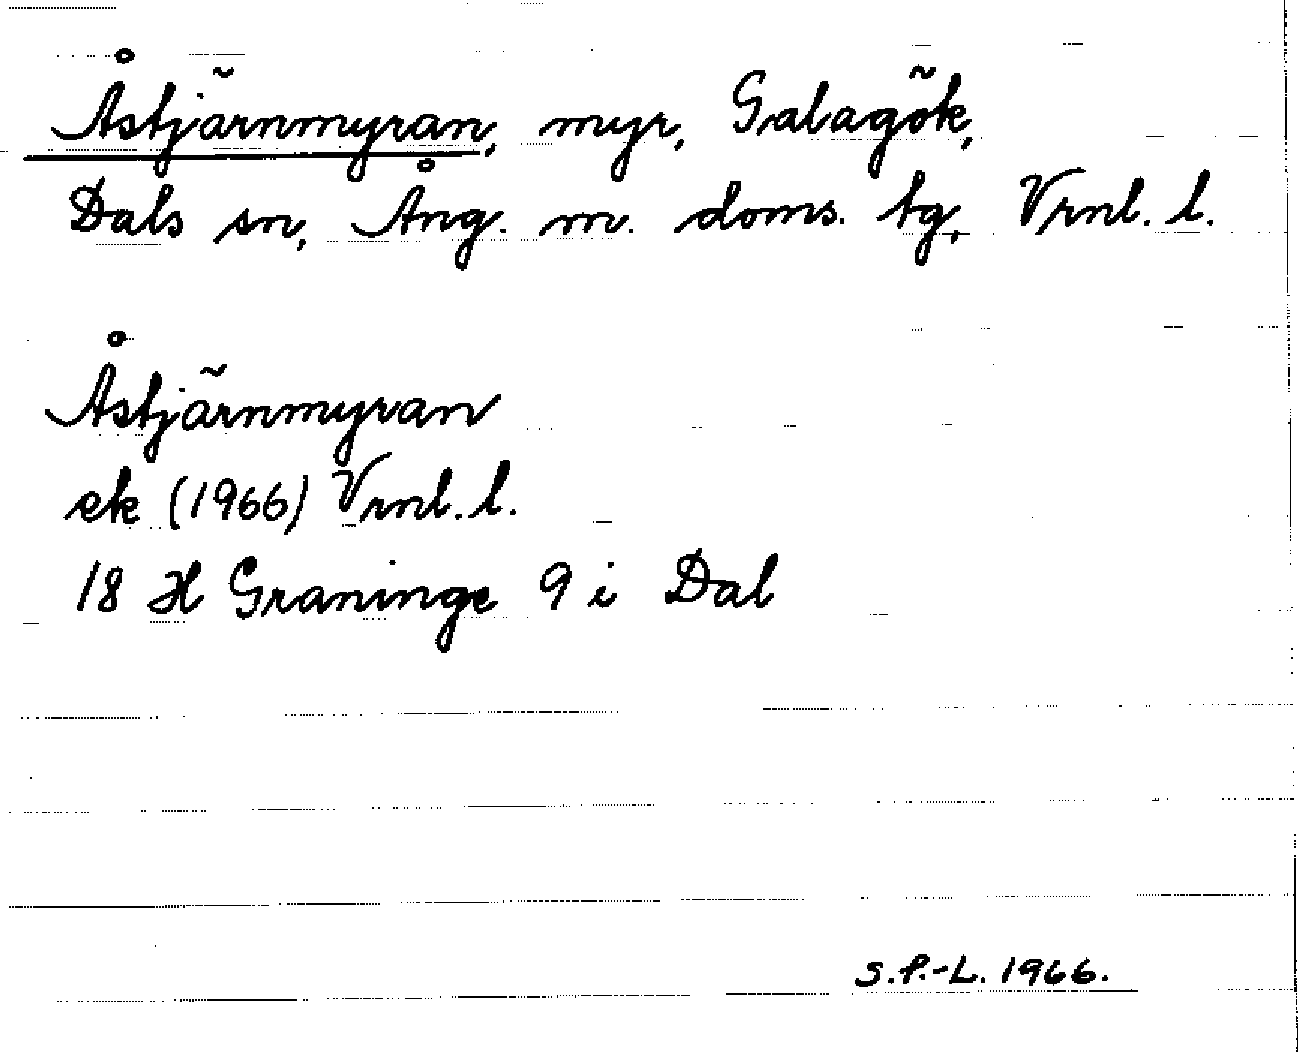 Åstjärnmyran, myr, Galagök,
Dals sn, Ång. m. doms. tg, Vrnl. l.
Åstjärnmyran
ek (1966) Vrnl. l.
18 H Graninge 9 i Dal
S.P.-L. 1966.